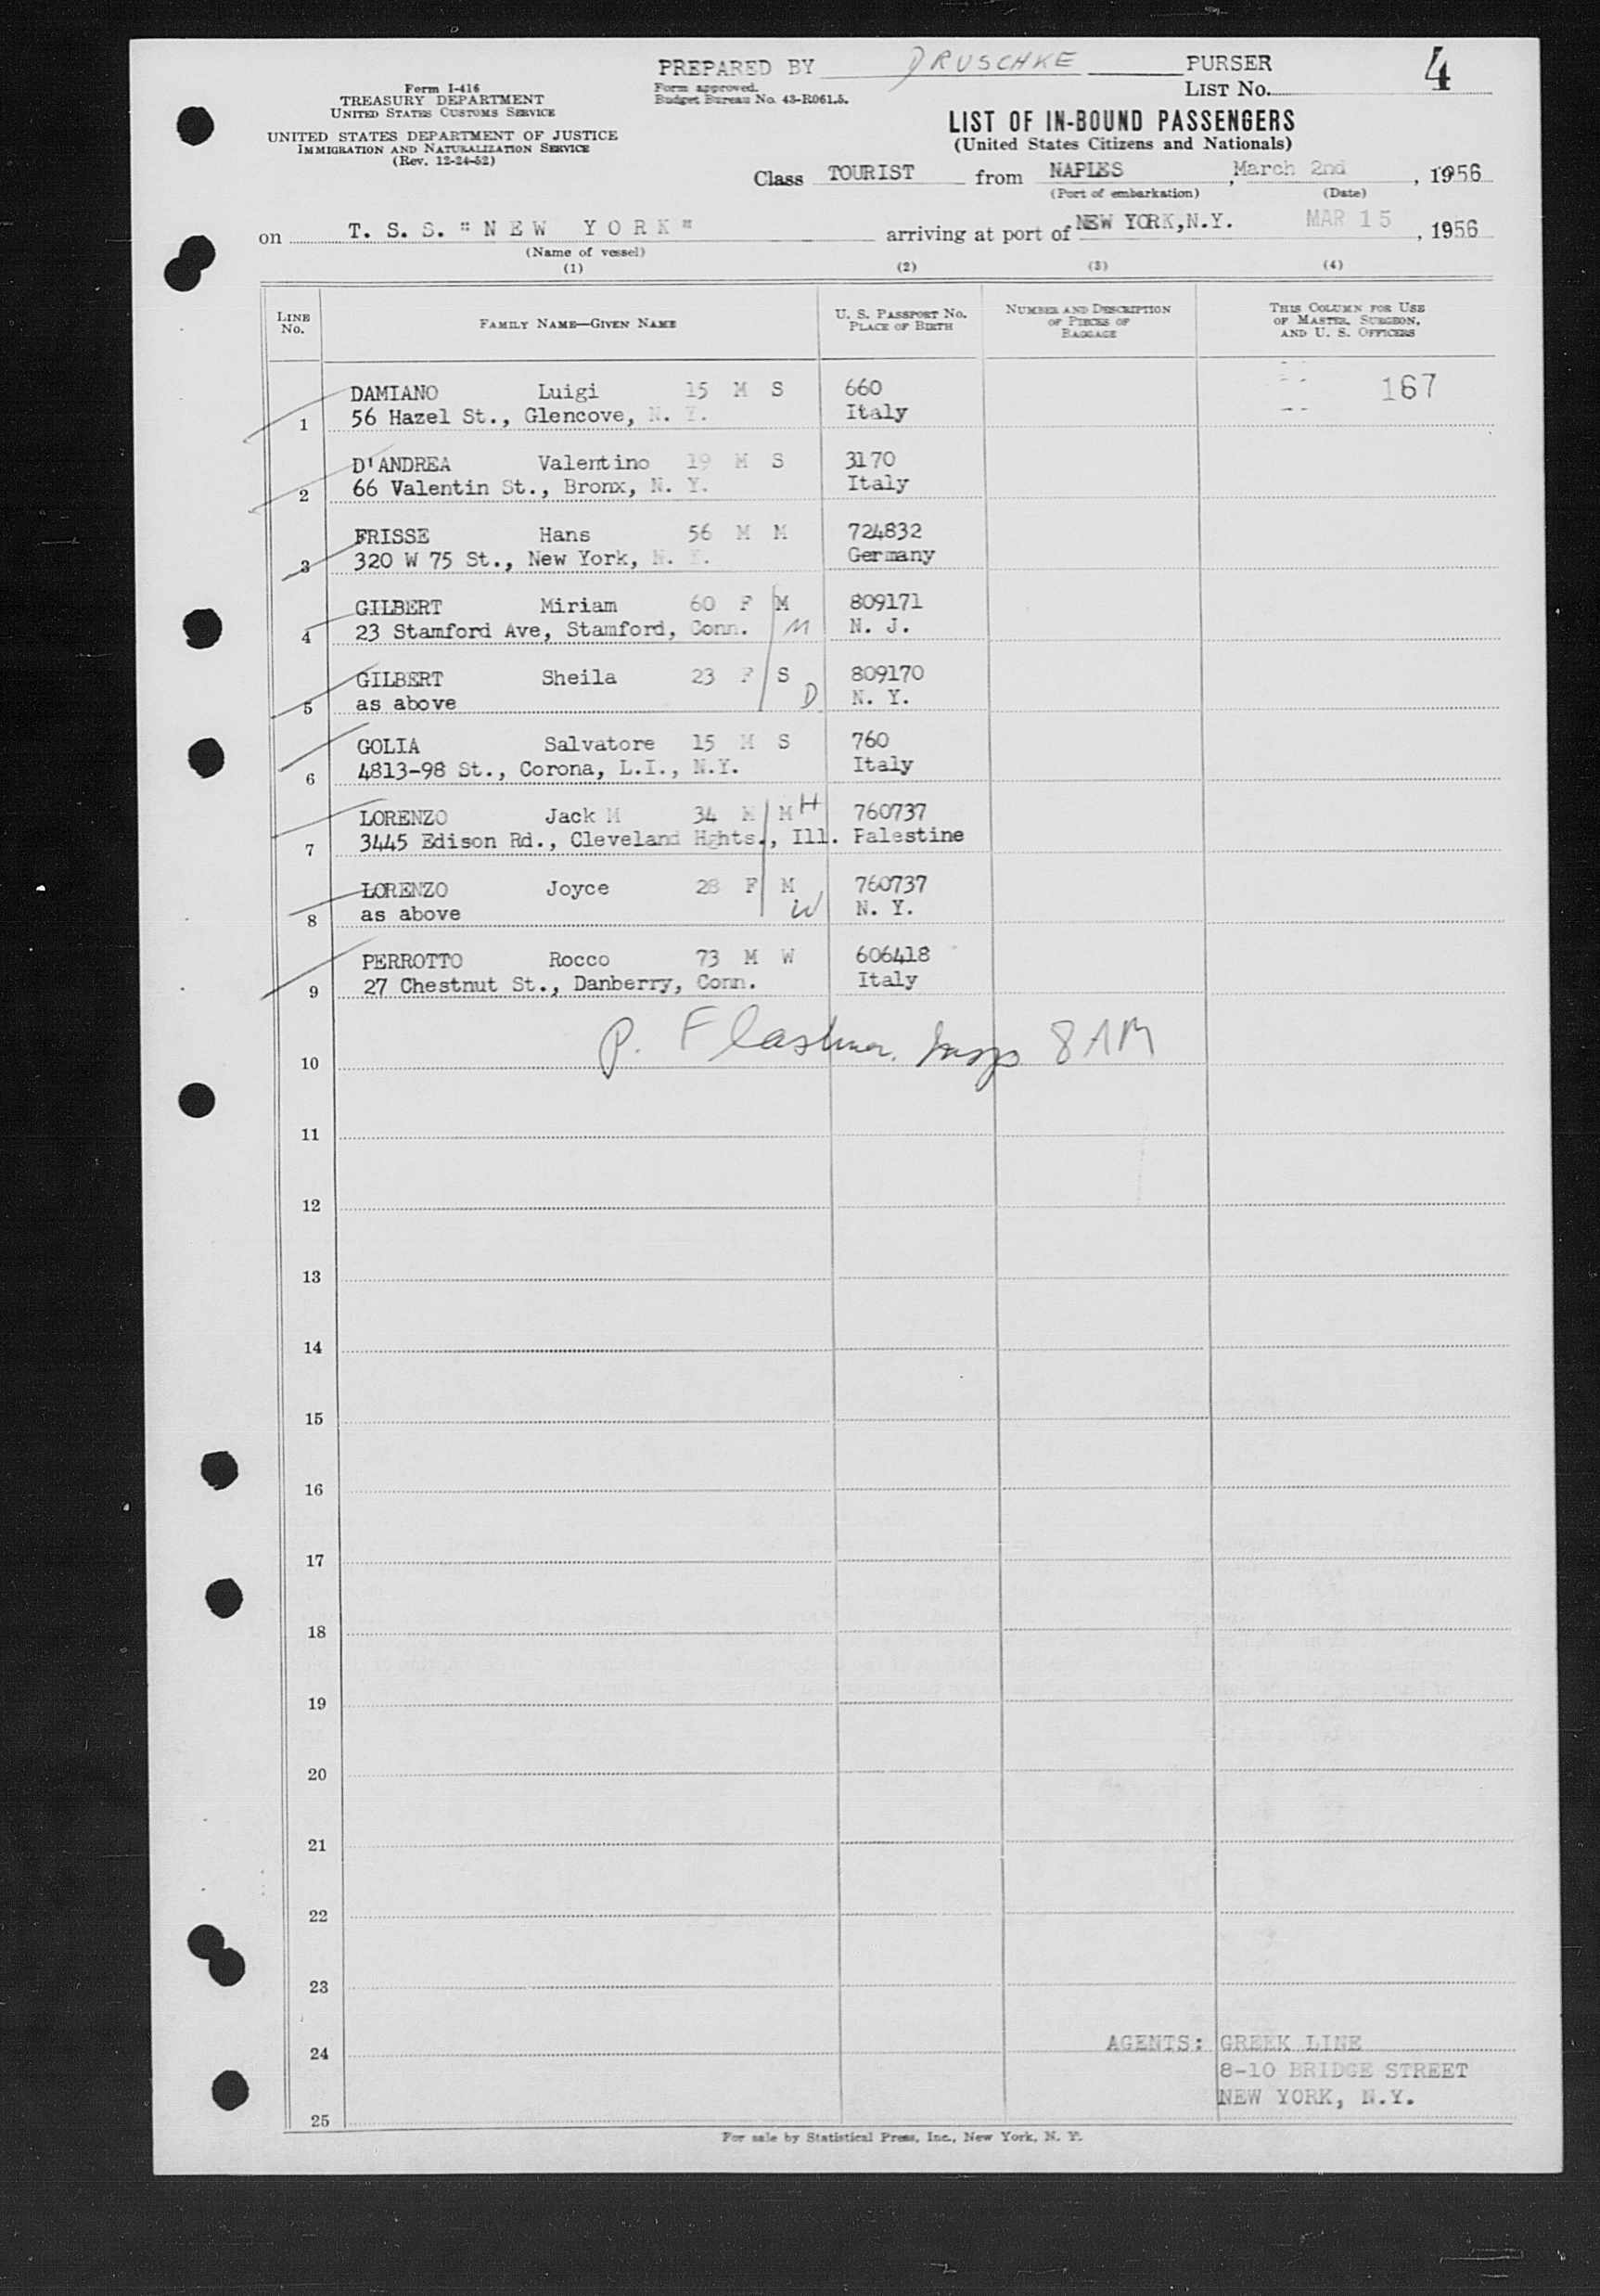 PREPARED BY DRUSCHKE PURSER
Form approved.
Budget Bureau No. 43-R061.5.
LIST No. 4
Form I-416
TREASURY DEPARTMENT
UNITED STATES CUSTOMS SERVICE
UNITED STATES DEPARTMENT OF JUSTICE
IMMIGRATION AND NATURALIZATION SERVICE
(Rev. 12-24-52)
LIST OF IN-BOUND PASSENGERS
(United States Citizens and Nationals)
Class TOURIST from NAPLES, March 2nd, 1956
(Port of embarkation) (Date)
on T. S. S. "NEW YORK" arriving at port of NEW YORK, N.Y. MAR 15, 1956
(Name of vessel)
(1) (2) (3) (4)
LINE No. FAMILY NAME—GIVEN NAME U. S. PASSPORT No. PLACE OF BIRTH NUMBER AND DESCRIPTION OF PIECES OF BAGGAGE THIS COLUMN FOR USE OF MASTER, SURGEON, AND U. S. OFFICERS
DAMIANO Luigi 15 M S 660 167
1 56 Hazel St., Glencove, N. Y. Italy
D'ANDREA Valentino 19 M S 3170
2 66 Valentin St., Bronx, N. Y. Italy
FRISSE Hans 56 M M 724832
3 320 W 75 St., New York, N. Y. Germany
GILBERT Miriam 60 F M 809171
4 23 Stamford Ave, Stamford, Conn. M N. J.
GILBERT Sheila 23 F S 809170
5 as above D N. Y.
GOLIA Salvatore 15 M S 760
6 4813-98 St., Corona, L.I., N.Y. Italy
LORENZO Jack M 34 M M H 760737
7 3445 Edison Rd., Cleveland Hghts., Ill. Palestine
LORENZO Joyce 28 F M 760737
8 as above W N. Y.
PERROTTO Rocco 73 M W 606418
9 27 Chestnut St., Danberry, Conn. Italy
P. 8 AM
10
11
12
13
14
15
16
17
18
19
20
21
22
23
24 AGENTS: GREEK LINE
8-10 BRIDGE STREET
NEW YORK, N.Y.
25
For sale by Statistical Press, Inc., New York, N. Y.